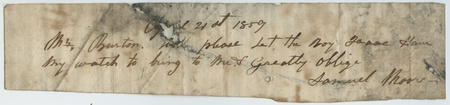 April 21st 1859
Mr. Burton will please let the Boy Isaac have
my watch to bring to me & Greatly Oblige
Samuel Moore